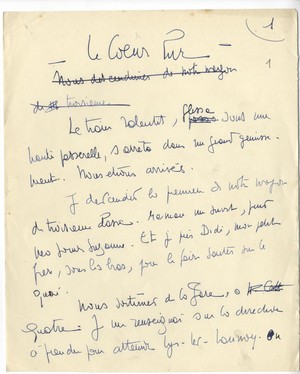 1
Le Coeur Pur
Nous descendîmes de notre wagon
1
de troisième
Le train ralentit, glissa sous une
haute passerelle, s'arrêta dans un grand gémisse-
ment. Nous étions arrivés.
Je descendis les premiers de notre wagon
de troisième classe. Maman me suivit, puis
mes soeurs Suzanne. Et je pris Didi, mon petit
frère, sous les bras, pour le faire sauter sur le
quai.
Nous sortîmes de la gare, à
quatre. Je me renseignai sur la direction
à prendre pour atteindre Lys-lez-Lannoy. On